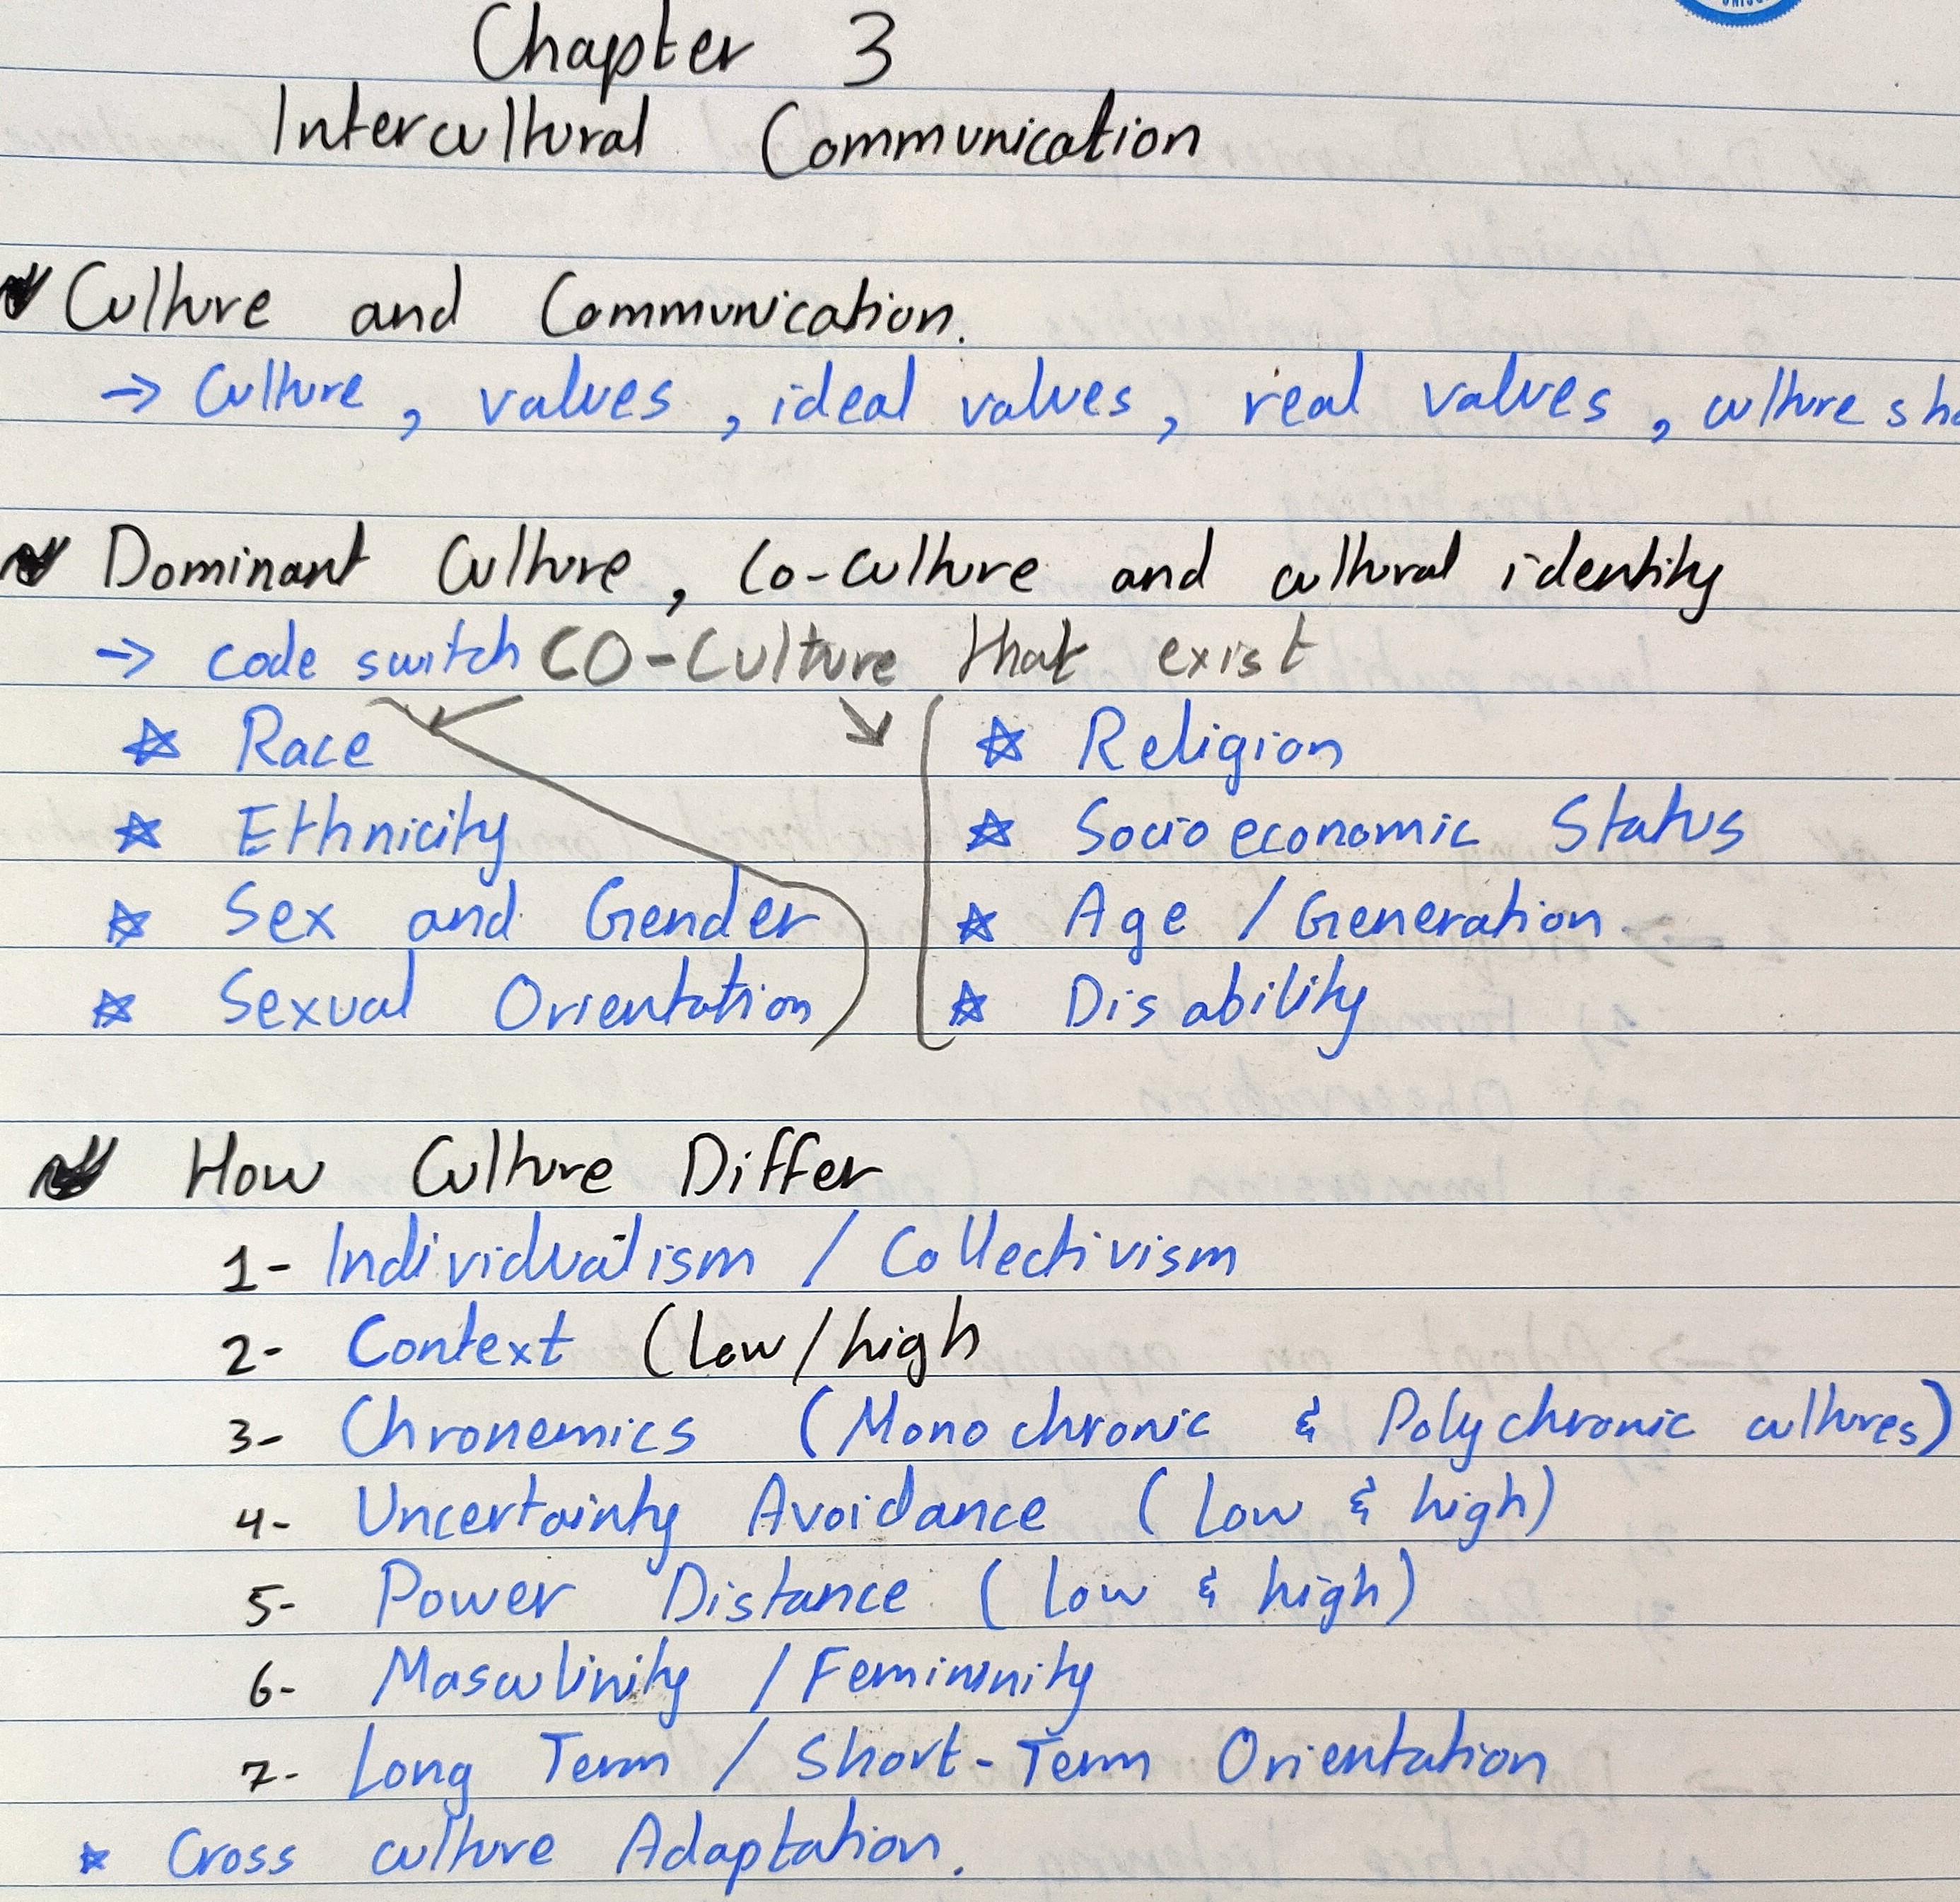 Chapter 3
Intercultural Communication
Culture and Communication.
→ Culture, values, ideal values, real values, culture
Dominant Culture, Co-culture and cultural identity
→ code switch CO-Culture that exist
☆ Race ☆ Religion
☆ Ethnicity ☆ Socioeconomic Status
☆ Sex and Gender ☆ Age / Generation
☆ Sexual Orientation ☆ Disability
How Culture Differ
1- Individualism / Collectivism
2- Context (low/high
3- Chronemics (Monochronic & Polychronic cultures)
4- Uncertainty Avoidance (low & high)
5- Power Distance (low & high)
6- Masculinity / Femininity
7- Long Term / Short-Term Orientation
* Cross culture Adaptation.